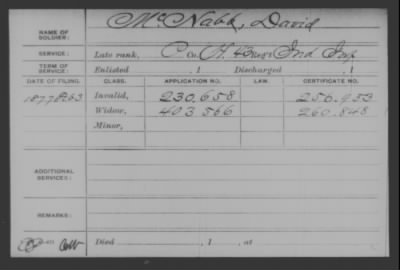 NAME OF SOLDIER: McNabb, David
SERVICE: Late rank, Co. H, 43 Reg't Ind Inf
TERM OF SERVICE: Enlisted , 1 Discharged , 1
DATE OF FILING. CLASS. APPLICATION NO. LAW. CERTIFICATE NO.
1877 Invalid, 230.658
Widow, 403.566 260.848
Minor,
ADDITIONAL SERVICES:
REMARKS:
Died , 1 , at